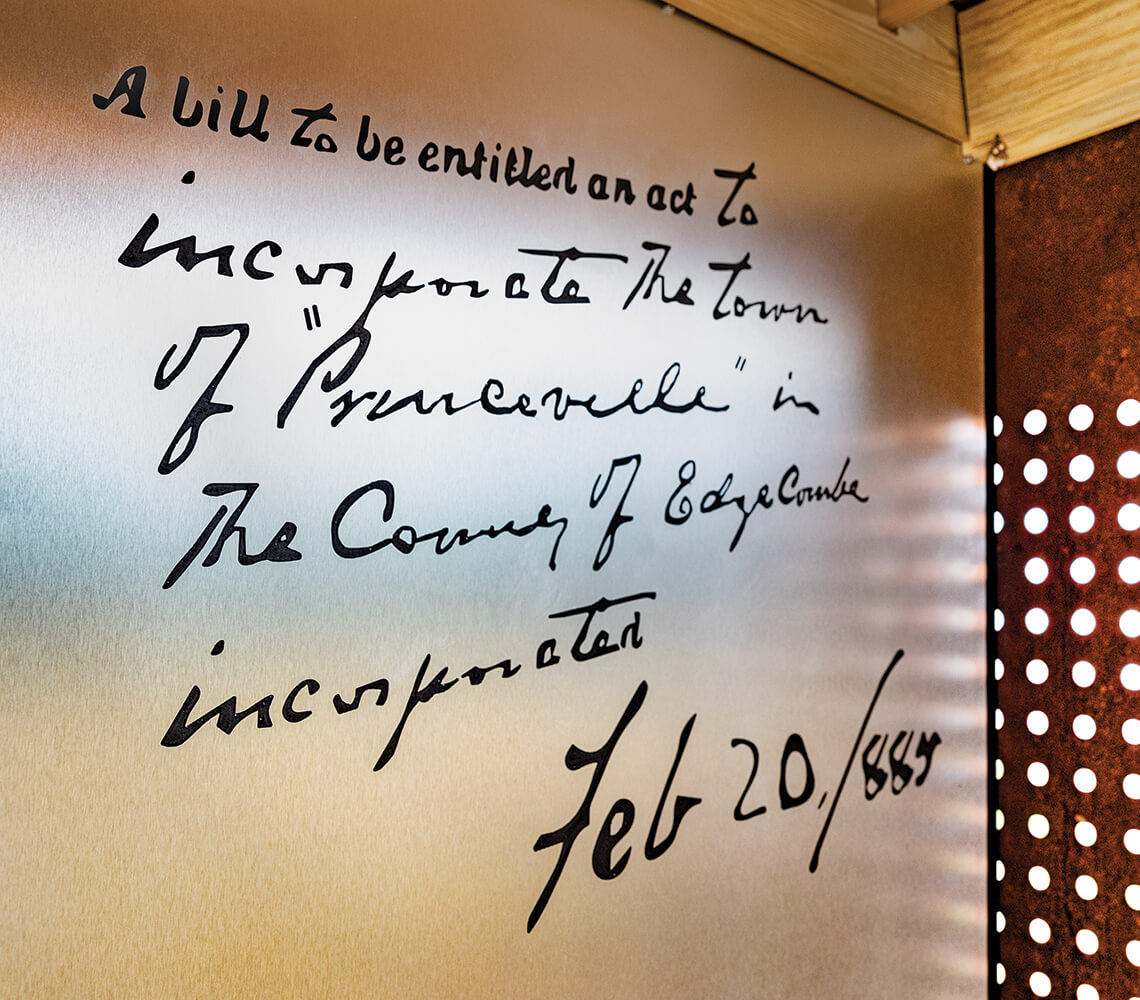 A bill to be entitled an act to
incorporate The town
of "Princeville" in
The County of EdgeCombe
incorporated
Feb 20, 1885